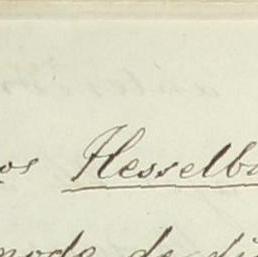 os Hesselb
mode de di